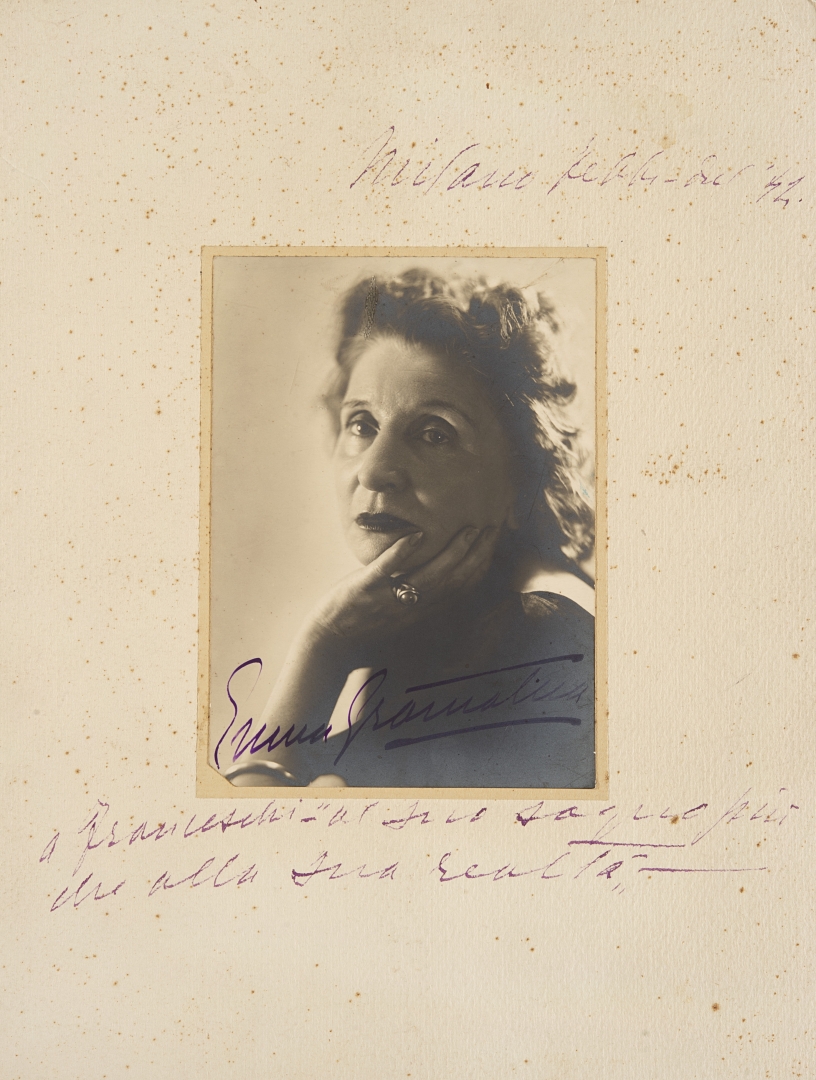 Milano febbraio '42.
Emma Gramatica
a Franceschi - al suo sogno più
che alla sua realtà,